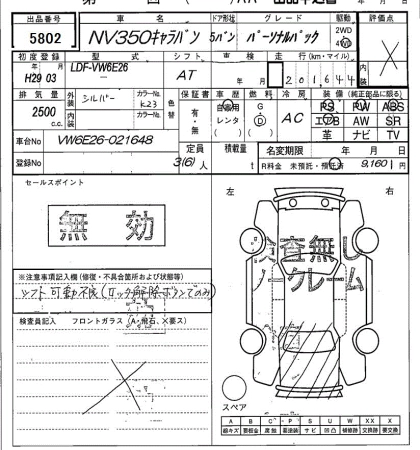 出品番号 車名 ドア形状 グレード 駆動 評価点
5802 NV350キャラバン 5バン パーソナルパック 2WD 4WD
初度登録 型式 シフト 車検 走行(km・マイル)
年 月 LDF-VW6E26 年 月
H29 03 － AT 201,644
排気量 外装 シルバー カラーNo. K23 色替 保証書 車歴 燃料 冷房 装備(純正部品に限る)
2500 c.c. 内装 カラーNo. 有・無 自家用 レンタ G・D AC PS PW ABS
エアB AW SR
革 ナビ TV
車台No VW6E26-021648 定員 積載量 名変期限 年 月 日
登録No 3(6)人 t R料金 未預託・預託済 9,160円
セールスポイント 左 右
無効
検査無し
ノークレーム
※注意事項記入欄(修復・不具合箇所および状態等)
シフト可動不良(ロック解除ボタンでのみ)
検査員記入 フロントガラス(A・飛石、×要ス)
スペア
A B C P S U W X XX
線キズ